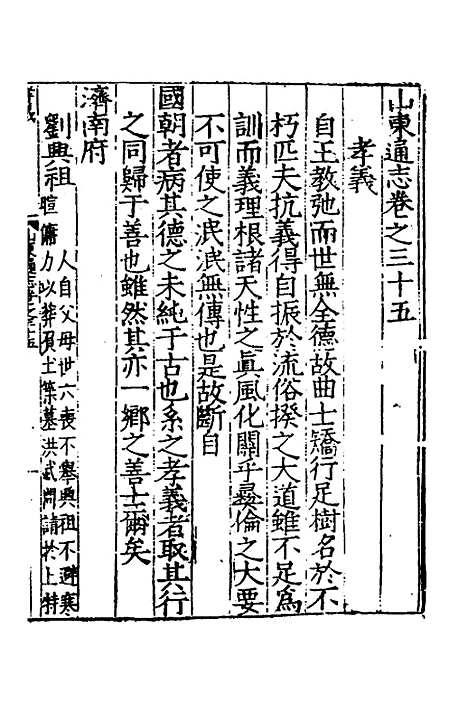 山東通志卷之三十五
孝義
自王教弛而世無全德故曲士矯行足樹名於不
朽匹夫抗義得自振於流俗揆之大道雖不足為
訓而義理根諸天性之眞風化關乎彞倫之大要
不可使之泯泯無傳也是故斷自
國朝者病其德之未純于古也系之孝義者取其行
之同歸于善也雖然其亦一鄉之善士爾矣
濟南府
劉興祖
人自父母世六喪不舉興祖不避寒
暄傭力以葬負土築墓洪武間請於上特